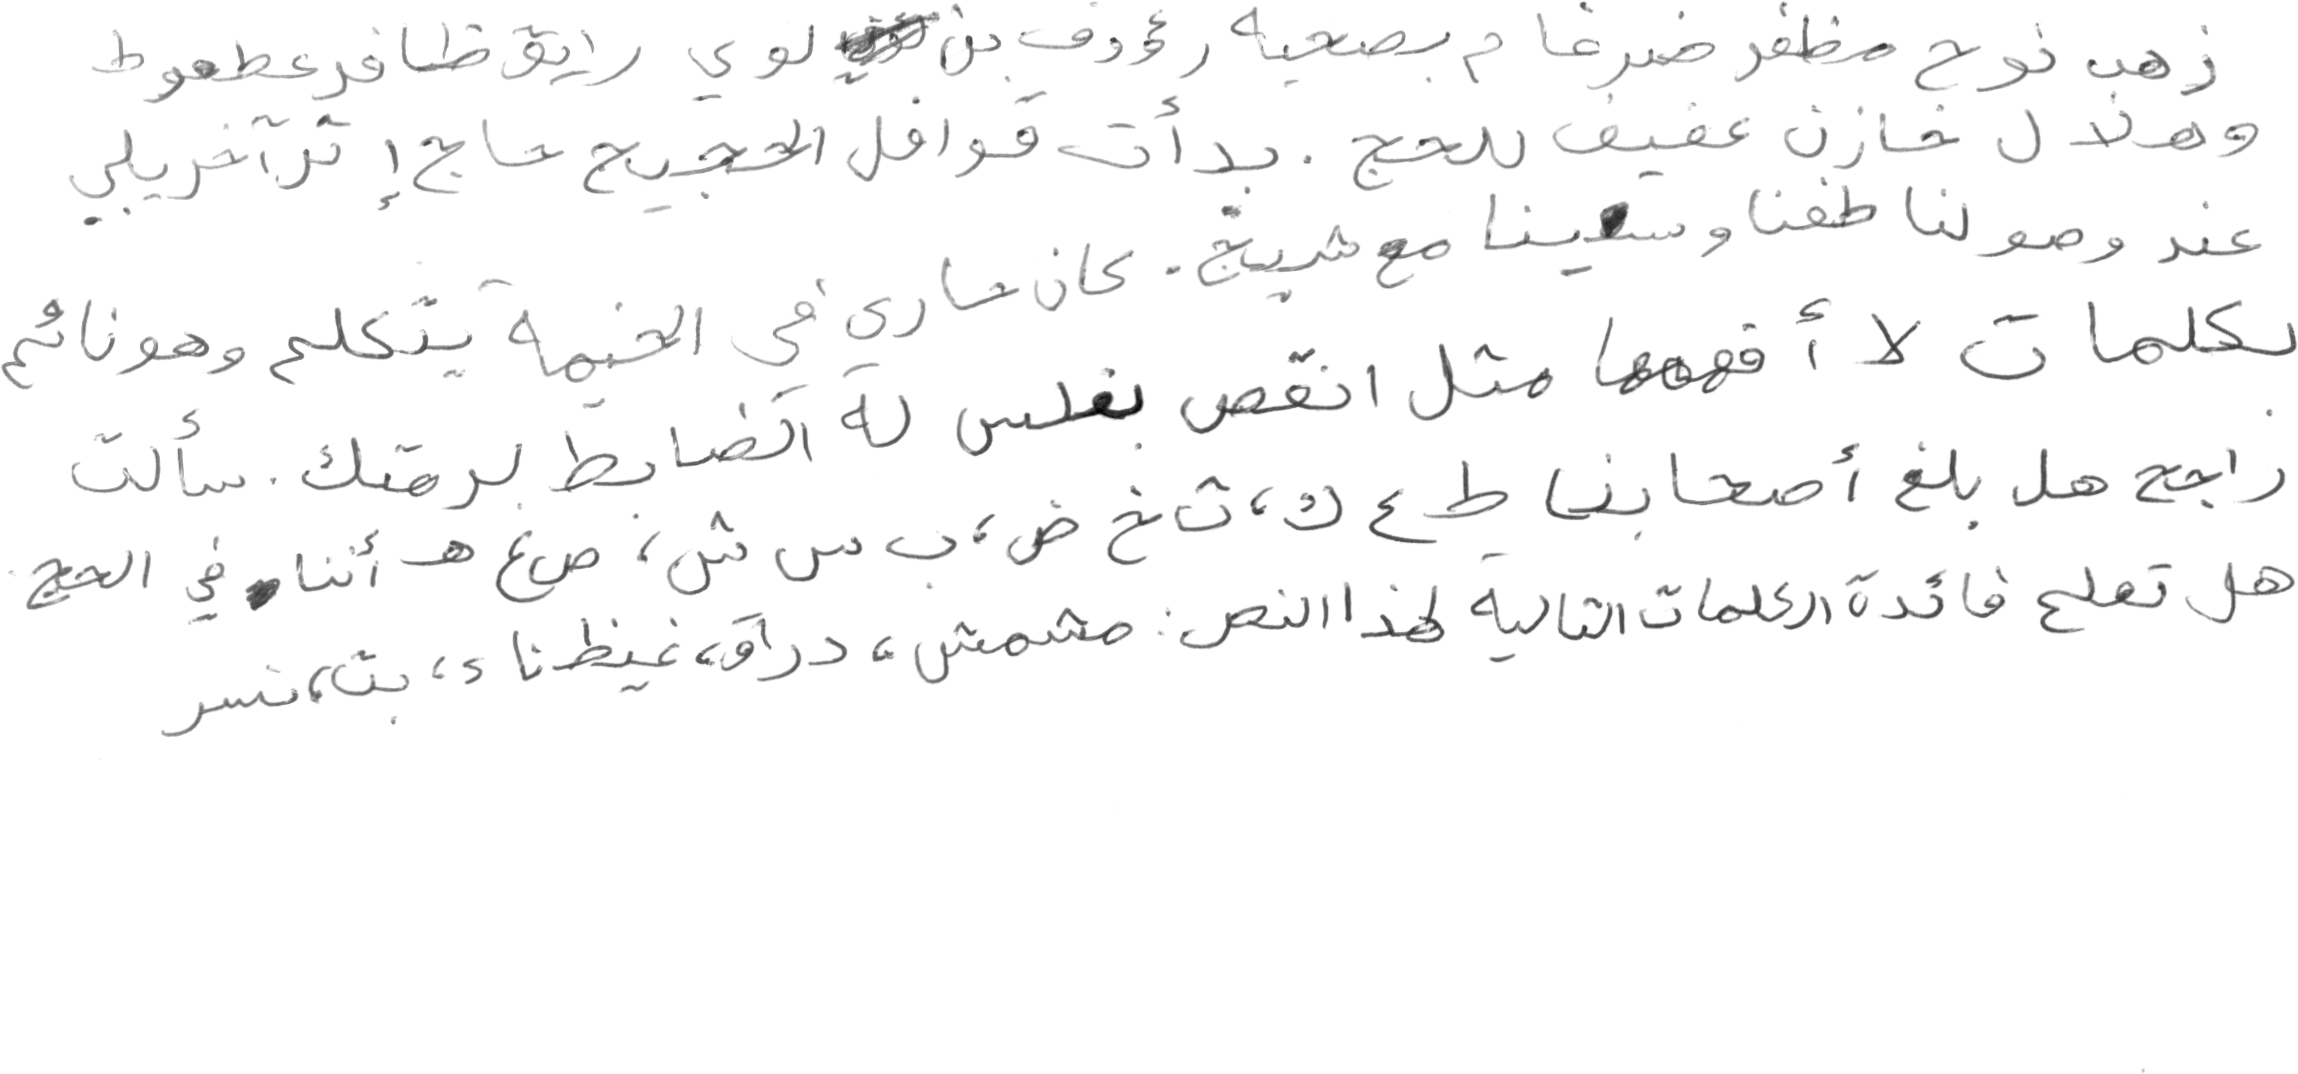 ذهب نوح مظفر ضرغام بصحبه رؤوف بن لوي رايق ظافر عطعوط
وهلال خازن عفيف للحج . بدأت قوافل الحجيج حاج إثر آخر يلبي
عند وصولنا طفنا وسعينا مع شريخ . كان جاري في الخيمة يتكلم وهو نائم
بكلمات لا أفهمها مثل انقص بغلس لة الضابط لرمتك . سألت
راجح هل بلغ أصحابنا ط ع ك، ث خ ض، ب س ش، ص ع هـ أثناء في الحج
هل تعلم فائدة الكلمات التالية لهذا النص : مشمش، دراق، غيظ ناء، بت، نسر